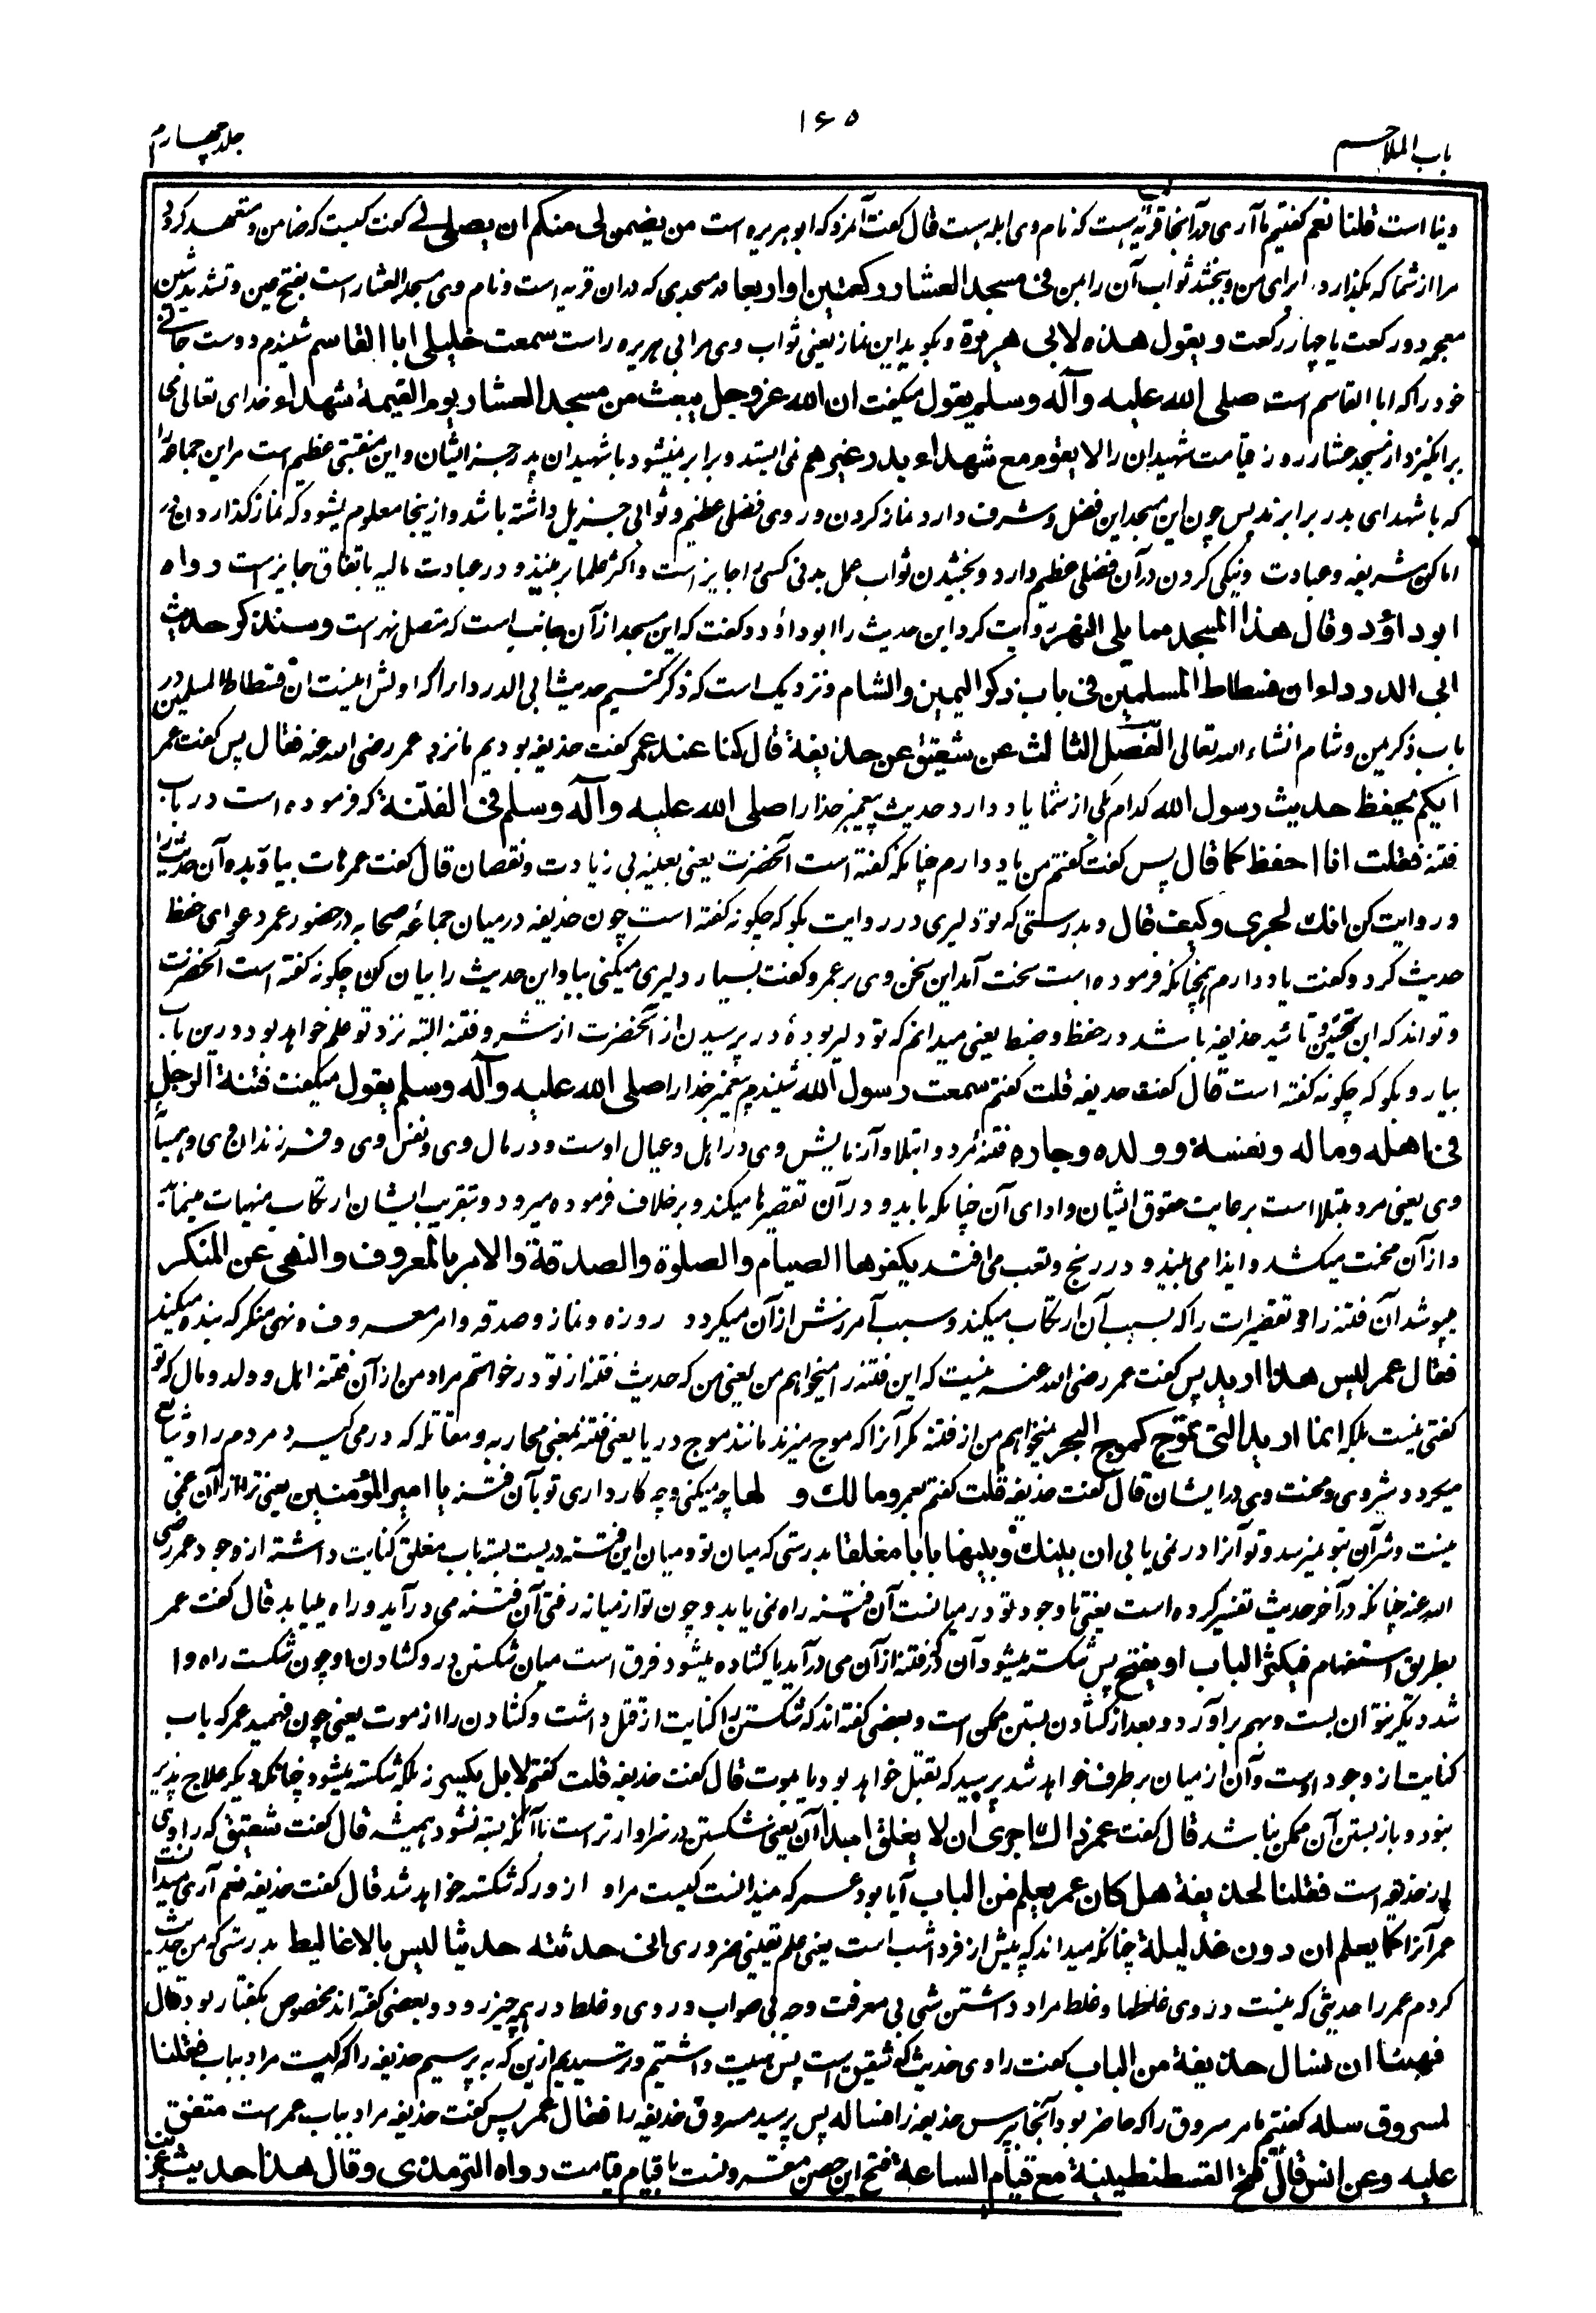 ۱۶۵
باب الملاحم
جلد چهارم
دنیا است قلنا نعم گفتیم ما آری در آنجا قریه هست که نام وی ابله هست قال گفت آنمرد که ابوهریره است من یضمن لی منکم ان یصلی لے گفت کیست که ضامن و متعهد گردد
مرا از شما که بگذارد برای من و بخشد ثواب آن را بمن فی مسجد العشار رکعتین او اربعا در مسجدی که دران قریه است و نام وی مسجد العشار است بفتح عین و تشدید شین
معجمه دو رکعت یا چهار رکعت و یقول هذه لابی هریرة و بگوید این نماز یعنی ثواب وی مر ابی هریره راست سمعت خلیلی ابا القاسم شنیدم دوست جانی
خود را که ابا القاسم است صلی الله علیه وآله وسلم یقول میگفت ان الله عز وجل یبعث من مسجد العشار یوم القیمة شهداء خدای تعالی می
برانگیزد از مسجد عشار روز قیامت شهیدان را لا یقوم مع شهداء بدر غیرهم نمی ایستد و برابر نمیشود با شهیدان بدر جز ایشان و این منقبتی عظیم است مر این جماعه را
که با شهدای بدر برابرند پس چون این مسجد این فضل و شرف دارد نماز کردن در وی فضلی عظیم و ثوابی جزیل داشته باشد و ازینجا معلوم میشود که نماز گذاردن در
اماکن شریفه و عبادت و نیکی کردن در آن فضلی عظیم دارد و بخشیدن ثواب عمل بدنی کسی را جایز است و اکثر علما برینند و در عبادت مالیه باتفاق جایز است رواه
ابو داؤد وقال هذا المسجد مما یلی النهر روایت کرد این حدیث را ابو داؤد و گفت که این مسجد از آن جانب است که متصل نهر است وسنذکر حدیث
ابی الدرداء ان فسطاط المسلمین فی باب ذکر الیمن والشام و نزدیک است که ذکر کنیم حدیث ابی الدرداء را که اولش اینست ان فسطاط المسلمین در
باب ذکر یمن و شام انشاء الله تعالی الفصل الثالث عن شقیق عن حذیفة قال کنا عند عمر گفت حذیفه بودیم ما نزد عمر رضی الله عنه فقال پس گفت عمر
ایکم یحفظ حدیث رسول الله کدام یکی از شما یاد دارد حدیث پیغمبر خدا را صلی الله علیه وآله وسلم فی الفتنة که فرموده است در باب
فتنه فقلت انا احفظ کما قال پس گفت گفتم من یاد دارم چنانکه گفته است آنحضرت یعنی بعینه بی زیادت و نقصان قال گفت عمر هات بیا و بده آن حدیث را
و روایت کن انک لجری وکیف قال و بدرستی که تو دلیری در روایت بگو که چگونه گفته است چون حذیفه در میان جماعه صحابه در حضور عمر دعوای حفظ
حدیث کرد و گفت یاد دارم همچنانکه فرموده است سخت آمد این سخن وی بر عمر و گفت بسیار دلیری میکنی بیا و این حدیث را بیان کن چگونه گفته است آنحضرت
و تواند که این تحسین و تائید حذیفه باشد در حفظ و ضبط یعنی میدانم که تو دلیر بودهٔ در پرسیدن از آنحضرت از شر و فتنه البته نزد تو علم خواهد بود درین باب
بیار و بگو که چگونه گفته است قال گفت حذیفه قلت گفتم سمعت رسول الله شنیدم پیغمبر خدا را صلی الله علیه وآله وسلم یقول میگفت فتنة الرجل
فی اهله وماله ونفسه وولده وجاره فتنهٔ مرد و ابتلا و آزمایش وی در اهل و عیال اوست و در مال وی و نفس وی و فرزندان وی و همسایه
وی یعنی مرد مبتلا است برعایت حقوق ایشان و ادای آن چنانکه باید و در آن تقصیرها میکند و برخلاف فرموده میرود و بتقریب ایشان ارتکاب منهیات مینماید
و از آن محنت میکشد و ایذا می بیند و در رنج و تعب می افتد یکفرها الصیام والصلوة والصدقة والامر بالمعروف والنهی عن المنکر
میپوشد آن فتنه را و تقصیرات را که بسبب آن ارتکاب میکند و سبب آمرزش از آن میگردد روزه و نماز و صدقه و امر معروف و نهی منکر که بنده میکند
فقال عمر لیس هذا ارید پس گفت عمر رضی الله عنه نیست که این فتنه را میخواهم من یعنی من که حدیث فتنه از تو درخواستم مراد من از آن فتنه اهل و ولد و مال که تو
گفتی نیست بلکه انما ارید التی تموج کموج البحر نمیخواهم من از فتنه مگر آنرا که موج میزند مانند موج دریا یعنی فتنه بمعنی محاربه و مقاتله که در می گیرد مردم را و شایع
میگردد شر وی و محنت وی در ایشان قال گفت حذیفه قلت گفتم بعمر ومالک و لها چه میکنی و چه کار داری تو بآن فتنه یا امیر المؤمنین یعنی ترا از آن غمی
نیست و شر آن بتو نمیرسد و تو آنرا در نمی یابی ان بینک وبینها بابا مغلقا بدرستی که میان تو و میان این فتنه دریست بسته باب مغلق کنایت داشته از وجود عمر رضی
الله عنه چنانکه در آخر حدیث تفسیر کرده است یعنی تا وجود تو در میانست آن فتنه راه نمی یابد و چون تو از میانه رفتی آن فتنه می در آید و راه مییابد قال گفت عمر
بطریق استفهام فیکسر الباب او یفتح پس شکسته میشود آن در که فتنه از آن می در آید یا کشاده میشود فرق است میان شکستن در و کشادن او چون شکست راه وا
شد دیگر نتوان بست و بهم بر آورد و بعد از کشادن بستن ممکن است و بعضی گفته اند که شکستن را کنایت از قتل داشت و کشادن را از موت یعنی چون فهمید عمر که باب
کنایت از وجود اوست و آن از میان برطرف خواهد شد پرسید که بقتل خواهد بود یا بموت قال گفت حذیفه قلت گفتم لا بل یکسر نه بلکه شکسته میشود چنانکه دیگر علاج پذیر
نبود و باز بستن آن ممکن نباشد قال گفت عمر ذاک اجری ان لا یغلق ابدا آن یعنی شکستن در سزاوارتر است تا آنکه بسته نشود همیشه قال گفت شقیق که راوی
از حذیفه است فقلنا لحذیفة هل کان عمر یعلم من الباب آیا بود عمر که میدانست کیست مراد از در که شکسته خواهد شد قال گفت حذیفه نعم آری میدانست
عمر آنرا کما یعلم ان دون غد لیلة چنانکه میداند که پیش از فردا شب است یعنی علم یقینی ضروری انی حدثته حدیثا لیس بالاغالیط بدرستی که من حدیث
کردم عمر را حدیثی که نیست در وی غلطها و غلط مراد داشتن شی بی معرفت وجه صواب در وی و غلط در همه چیز رود و بعضی گفته اند مخصوص بگفتار بود قال
فهبنا ان نسأل حذیفة من الباب گفت راوی حدیث که شقیق است پس هیبت داشتیم و ترسیدیم ازین که به پرسیم حذیفه را که کیست مراد بباب فقلنا
لمسروق سله گفتیم ما مر مسروق را که حاضر بود آنجا بپرس حذیفه را فسأله پس پرسید مسروق حذیفه را فقال عمر پس گفت حذیفه مراد بباب عمر است متفق
علیه وعن انس قال فتح القسطنطینیة مع قیام الساعة فتح این حصن مقرونست با قیام قیامت رواه الترمذی وقال هذا حدیث غریب